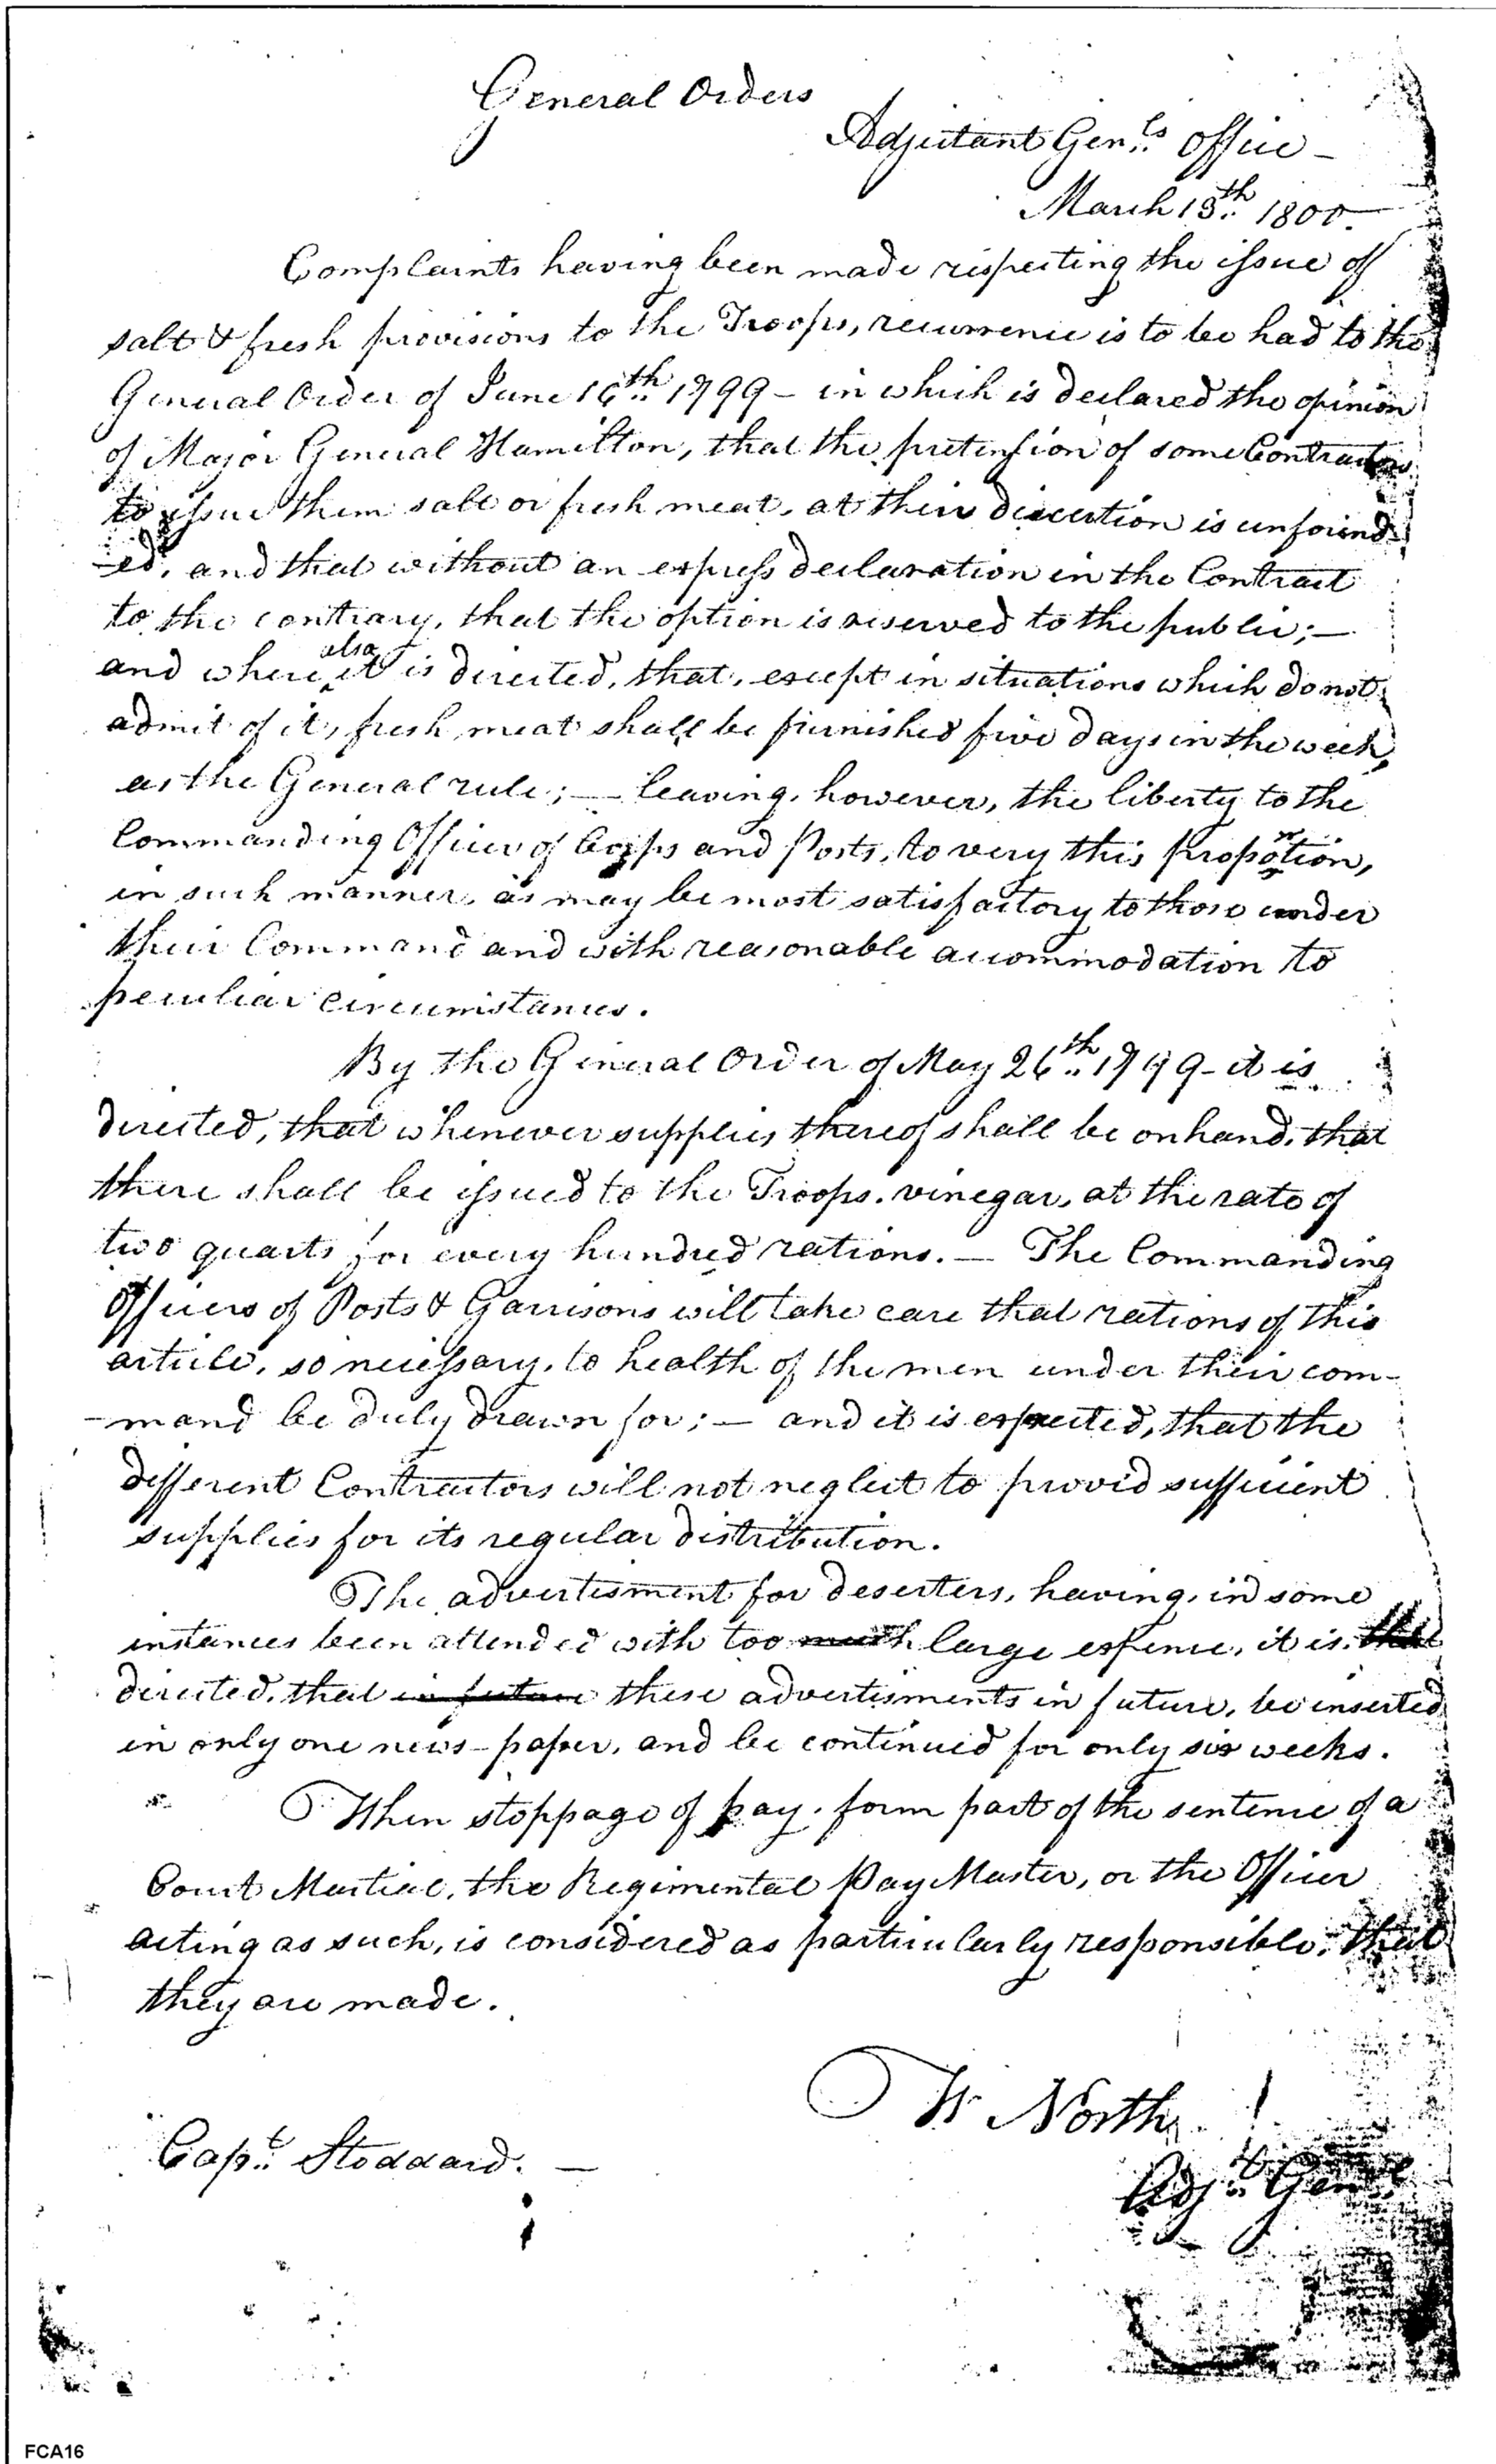 General Orders
Adjutant Gen.ls Office –
March 13.th 1800. —
Complaints having been made respecting the issue of
salt & fresh provisions to the Troops, recurrence is to be had to the
General Order of June 16.th 1799 – in which is declared the opinion
of Major General Hamilton, that the pretension of some Contractors
to issue them salt or fresh meat, at their discretion is unfound-
-ed, and that without an express declaration in the Contract
to the contrary, that the option is reserved to the public; —
and where also it is directed, that, except in situations which do not
admit of it, fresh meat shall be furnished five days in the week,
as the General rule; — leaving, however, the liberty to the
Commanding Officer of Corps and Posts, to very this proportion,
in such manner, as may be most satisfactory to those under
their Command and with reasonable accommodation to
peculiar circumstances.
By the General Order of May 26.th 1799 – it is
directed, that whenever supplies thereof shall be on hand, that
there shall be issued to the Troops, vinegar, at the rate of
two quarts for every hundred rations. — The Commanding
Officers of Posts & Garrisons will take care that rations of this
article, so necessary, to health of the men under their com-
-mand be duly drawn for; — and it is expected, that the
different Contractors will not neglect to provid sufficient
supplies for its regular distribution.
The advertisment for deserters, having, in some
instances been attended with too much large expence, it is that
directed, that in future these advertisments in future, be inserted
in only one news-paper, and be continued for only six weeks.
When stoppage of pay, form part of the sentence of a
Court Martial, the Regimental Pay Master, or the Officer
acting as such, is considered as particularly responsible, that
they are made.
W North
Adj.t Gen.l
Cap.t Stoddard. —
FCA16